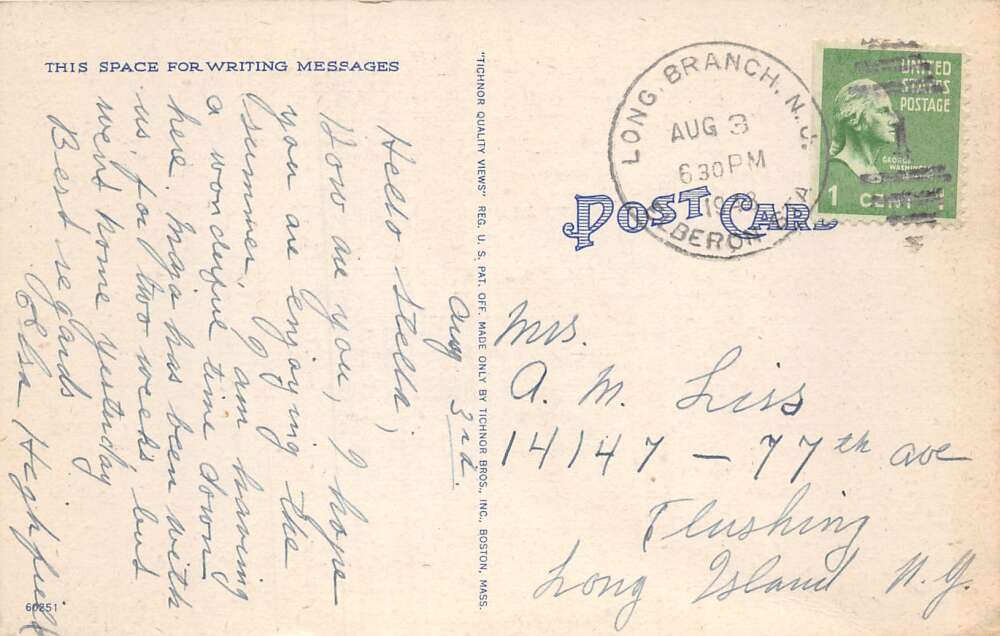 THIS SPACE FOR WRITING MESSAGES
Aug 3rd.
Hello Stella,
How are you, I hope
you are enjoying the
summer, I am having
a wonderful time down
here. Inga has been with
us, for two weeks but
went home yesterday
Best regards
Elsa Highfield
60251
"TICHNOR QUALITY VIEWS" REG. U. S. PAT. OFF. MADE ONLY BY TICHNOR BROS., INC., BOSTON, MASS.
POST CARD
LONG BRANCH, N.J.
AUG 3
630 PM
ELBERON STA
UNITED
STATES
POSTAGE
1
GEORGE
WASHINGTON
1 CENT 1
Mrs.
A. M. Liss
14147 – 77th ave
Flushing
Long Island N.Y.